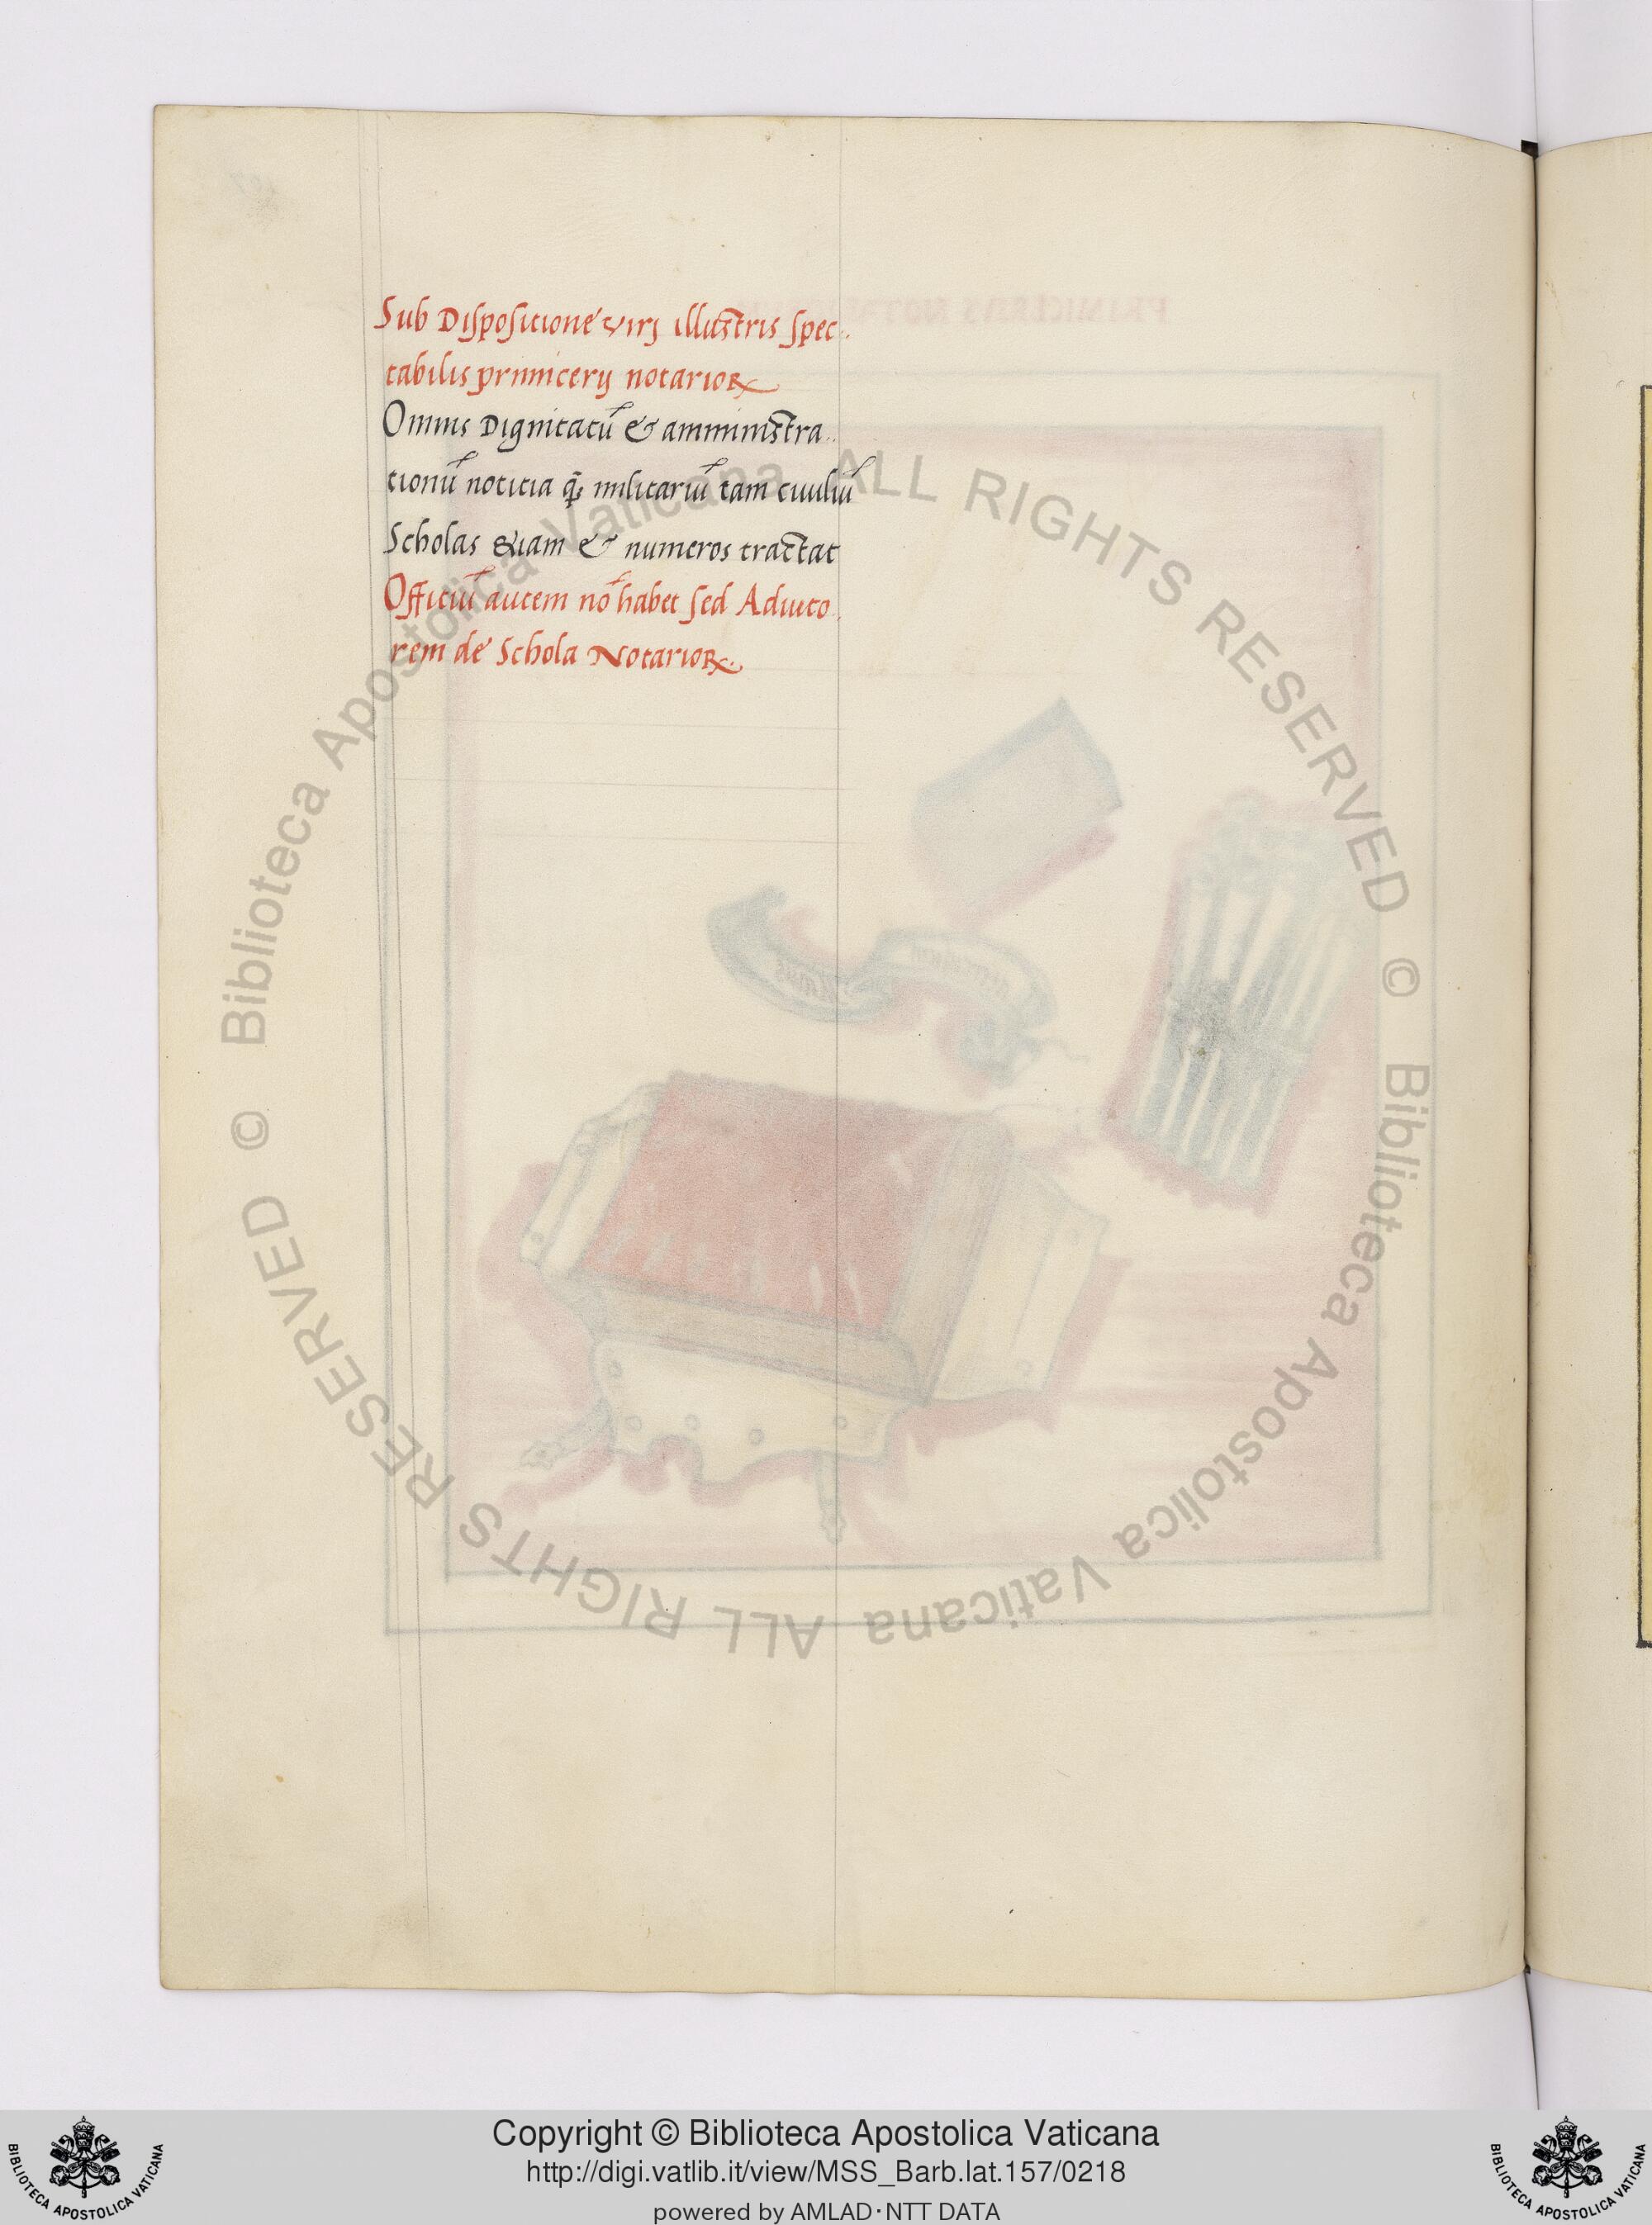 Sub Dispositione virj illustris spec..
tabilis primicerij notarioꝝ
Omnis Dignitatū & amministra..
tionū notitia q̃; militariū tam ciuiliū
Scholas &iam & numeros tractat
Officiū autem nō habet sed Adiuto..
rem de Schola Notarioꝝ.
© Biblioteca Apostolica Vaticana ALL RIGHTS RESERVED
© Biblioteca Apostolica Vaticana ALL RIGHTS RESERVED
Copyright © Biblioteca Apostolica Vaticana
http://digi.vatlib.it/view/MSS_Barb.lat.157/0218
powered by AMLAD·NTT DATA
BIBLIOTECA APOSTOLICA VATICANA
BIBLIOTECA APOSTOLICA VATICANA